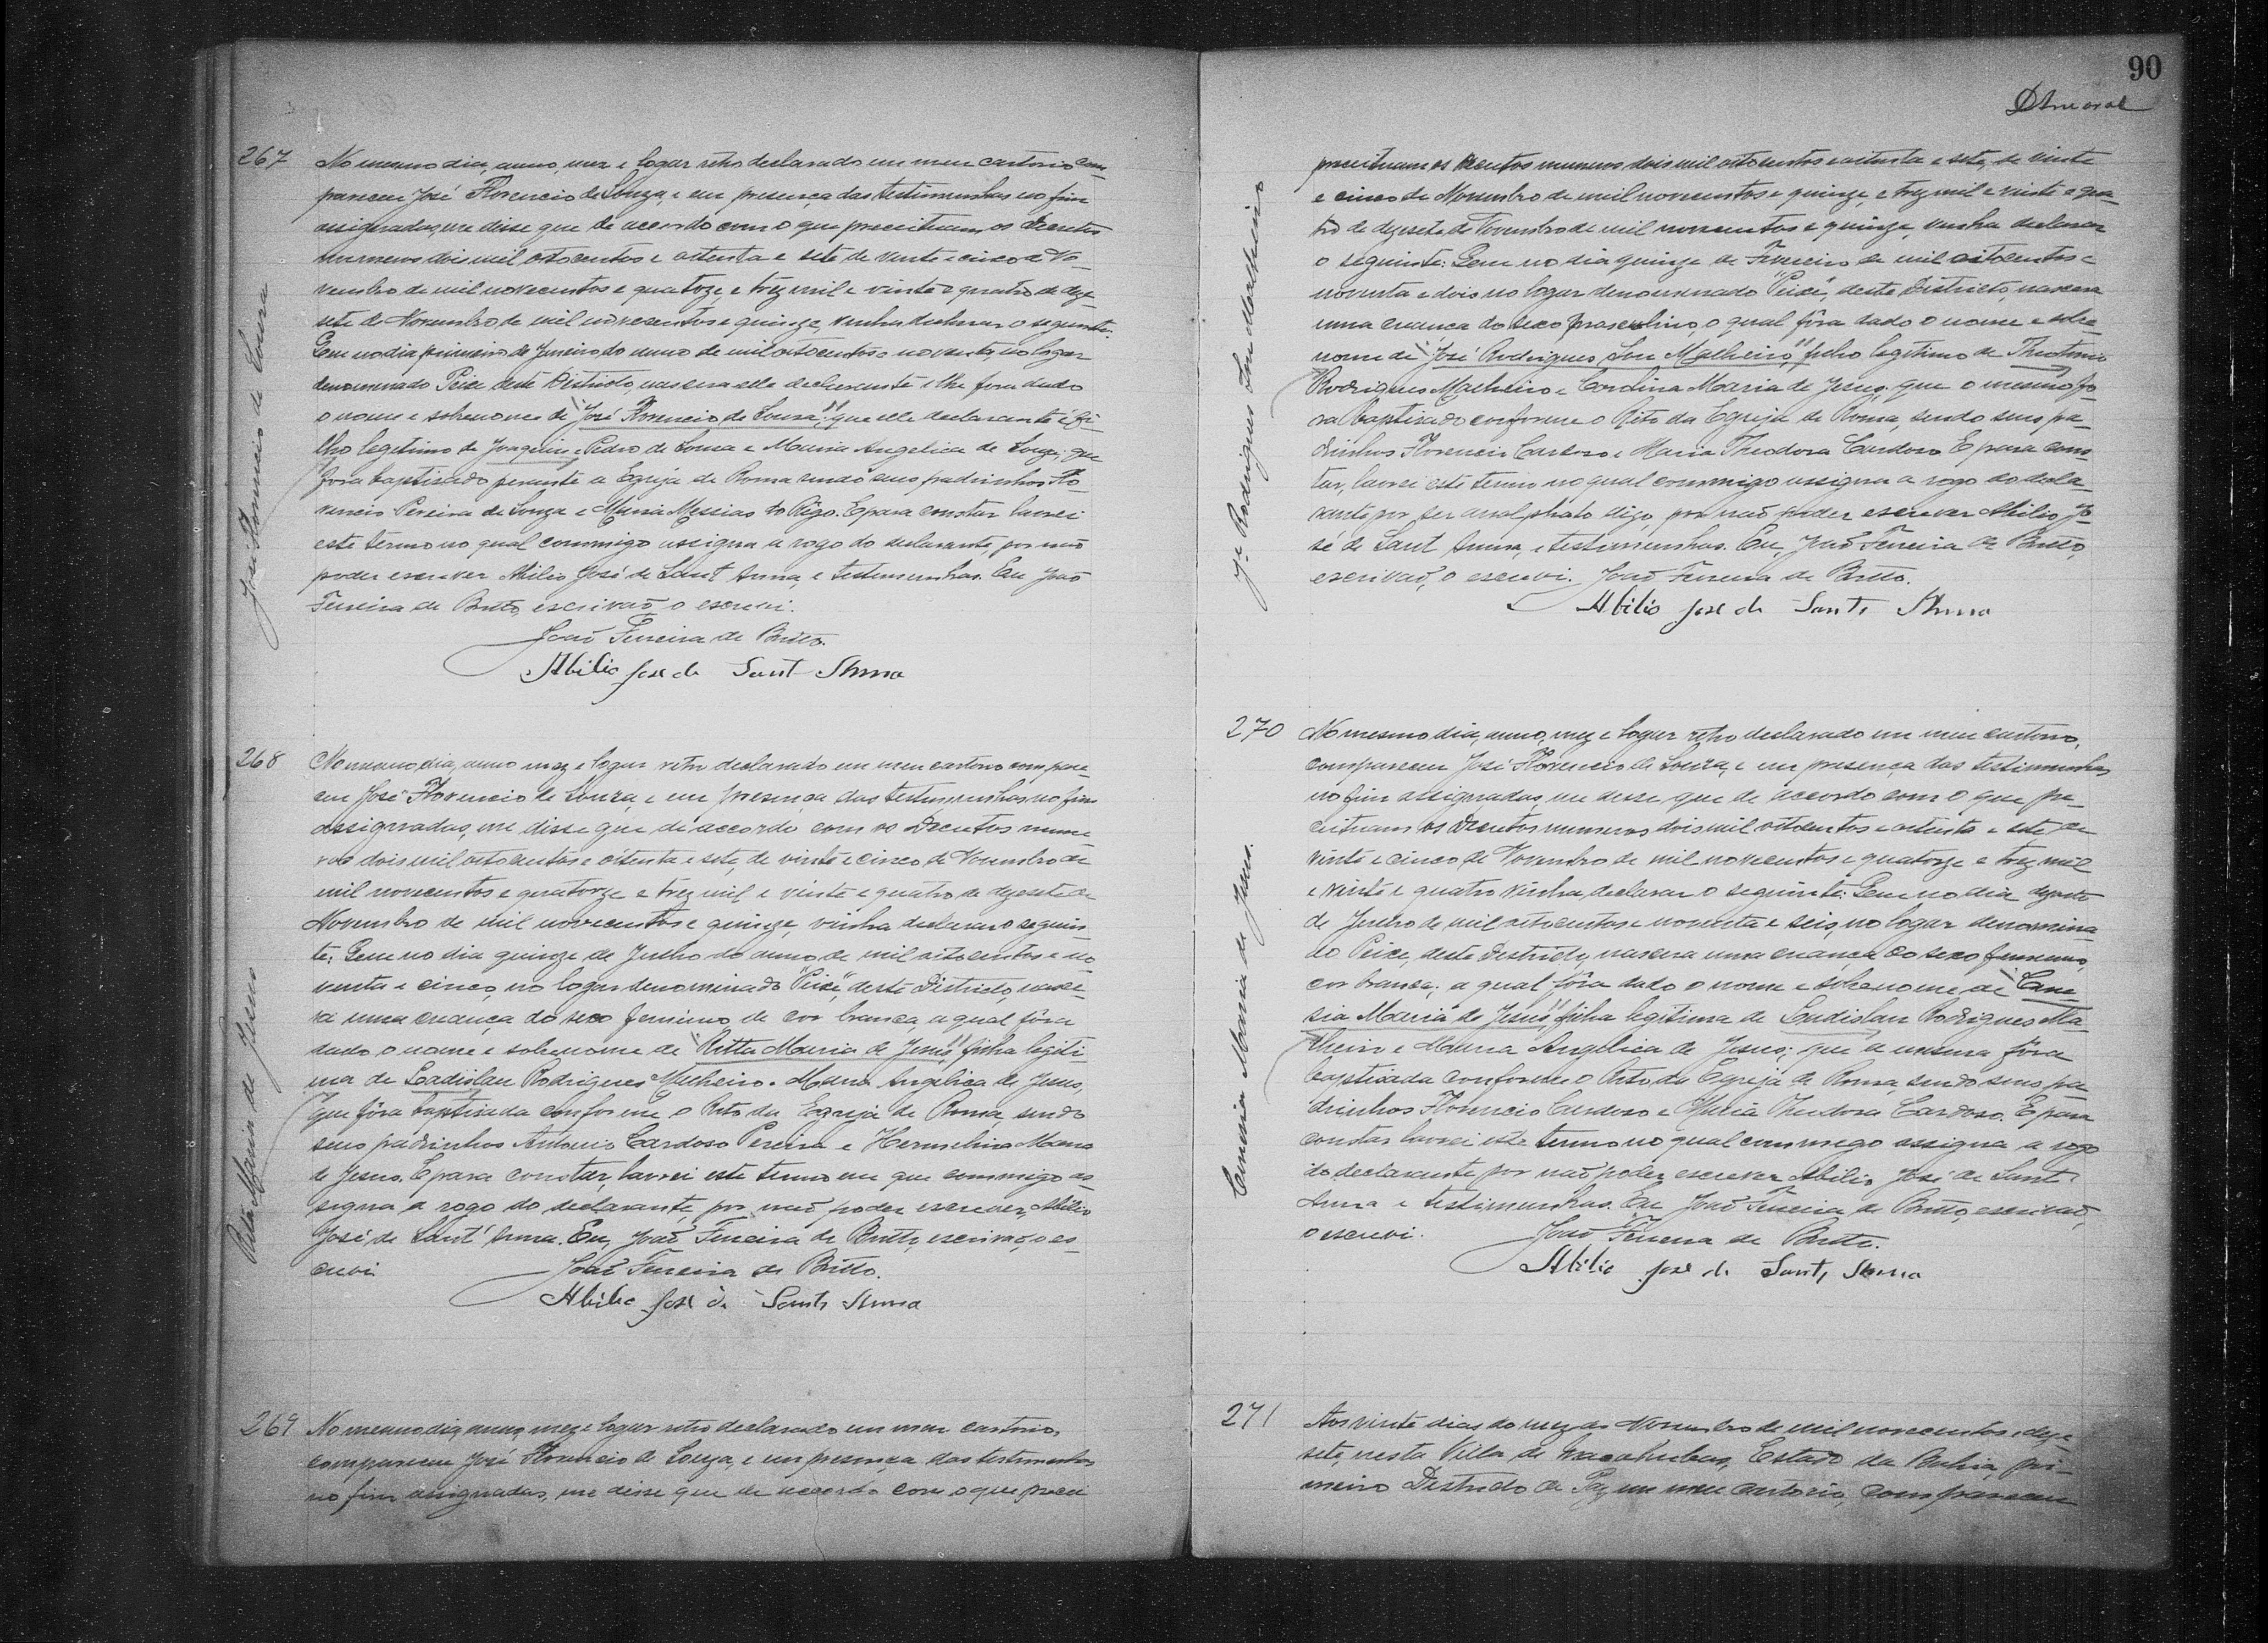 267
No mesmo dia, anno, mez e logar retro declarado em meu cartorio com-
pareceu José Florencio de Souza, e em presença das testimunhas no fim
assignadas, me disse que de accordo com o que preceituam os Decretos
numeros dois mil oitocentos e oitenta e sete de vinte e cinco de No-
vembro de mil novecentos e quatorze, e trez mil e vinte e quatro de deze
sete de Novembro de mil novecentos e quinze, vinha declarar o seguinte:
Que no dia primeiro de Janeiro do anno de mil oitocentos e noventa, no logar
denominado Peixe deste Districto, nascera elle declarante e lhe fora dado
o nome e sobrenome de "José Florencio de Souza"; que elle declarante é fi-
lho legitimo de Joaquim Pedro de Souza e Maria Angelica de Souza; que
fora baptisado perante a Egreja de Roma sendo seus padrinhos Flo-
rencio Pereira de Souza e Maria Messias do Rêgo. E para constar lavrei
este termo no qual commigo assigna a rogo do declarante, por não
poder escrever Abilio José de Sant'Anna, e testimunhas. Eu João
Ferreira de Britto, escrivão o escrevi.
João Ferreira de Britto.
Abilio José de Sant Anna
José Florencio de Souza
268
No mesmo dia, anno mez e logar retro declarado em meu cartorio compare-
ceu José Florencio de Souza, e em presença das testimunhas no fim
assignadas, me disse que de accordo com os Decretos nume-
ros dois mil oitocentos e oitenta e sete, de vinte e cinco de Novembro de
mil novecentos e quatorze e trez mil e vinte e quatro de dezesete de
Novembro de mil novecentos e quinze, vinha declarar o seguin-
te: Que no dia quinze de Julho do anno de mil oitocentos e no-
venta e cinco, no logar denominado "Peixe", deste Districto, nasce-
ra uma creança do sexo feminino de cor branca, a qual fôra
dado o nome e sobrenome de "Ritta Maria de Jesus", filha legiti-
ma de Ladislau Rodrigues Malheiro e Maria Angelica de Jesus,
que fôra baptisada conforme o Rito da Egreja de Roma, sendo
seus padrinhos Antonio Cardoso Pereira e Hermelina Maria
de Jesus. E para constar, lavrei este termo em que commigo as-
signa a rogo do declarante, por não poder escrever, Abilio
José de Sant'Anna. Eu, João Ferreira de Britto, escrivão, o es-
crevi.
João Ferreira de Britto.
Abilio José de Sant Anna
Rita Maria de Jesus
269
No mesmo dia, anno, mez e logar retro declarado em meu cartorio,
compareceu José Florencio de Souza, e em presença das testimunhas
no fim assignadas, me disse que de accordo com o que precei
90
D Amaral
preceituam os Decretos numeros dois mil oitocentos e oitenta e sete, de vinte
e cinco de Novembro de mil novecentos e quinze, e trez mil e vinte e qua-
tro de dezesete de Novembro de mil novecentos e quinze, vinha declarar
o seguinte: Que no dia quinze de Fevereiro de mil oitocentos e
noventa e dois no logar denominado "Peixe", deste Districto, nascera
uma creança do sexo masculino, o qual fôra dado o nome e sobre-
nome de "José Rodrigues Malheiro", filho legitimo de Theotonio
Rodrigues Malheiro e Carolina Maria de Jesus; que o mesmo fo-
ra baptisado conforme o Rito da Egreja de Roma, sendo seus pa-
drinhos Florencio Cardoso e Maria Theodora Cardoso. E para cons-
tar, lavrei este termo no qual commigo assigna a rogo do decla-
rante por ser analphabeto digo, por não poder escrever Abilio Jo-
sé de Sant Anna, e testimunhas. Eu, João Ferreira de Britto,
escrivão, o escrevi. João Ferreira de Britto.
Abilio José de Sant Anna
Je. Rodrigues Malheiro
270
No mesmo dia, anno, mez e logar retro declarado em meu cartorio,
compareceu José Florencio de Souza, e em presença das testimunhas
no fim assignadas, me disse que de accordo com o que pre-
ceituam os Decretos numeros dois mil oitocentos e oitenta e sete de
vinte e cinco de Novembro de mil novecentos e quatorze e trez mil
e vinte e quatro vinha declarar o seguinte: Que no dia dezoito
de Junho de mil oitocentos e noventa e seis, no logar denomina-
do Peixe, deste Districto, nascera uma creança do sexo feminino,
cor branca; a qual fôra dado o nome e sobrenome de "Can-
sia Maria de Jesus", filha legitima de Ladislau Rodrigues Ma-
lheiro e Maria Angelica de Jesus; que a mesma fôra
baptisada conforme o Rito da Egreja de Roma, sendo seus pa-
drinhos Florencio Cardoso e Maria Theodora Cardoso. E para
constar lavrei este termo no qual commigo assigna a rogo
do declarante por não poder escrever Abilio José de Sant
Anna e testimunhas. Eu João Ferreira de Britto, escrivão,
o escrevi.
João Ferreira de Britto.
Abilio José de Sant Anna
Maria de Jesus.
271
Aos vinte dias do mez de Novembro de mil novecentos e deze-
sete, nesta Villa de Macahubas, Estado da Bahia, pri-
meiro Districto de Paz em meu cartorio, compareceu